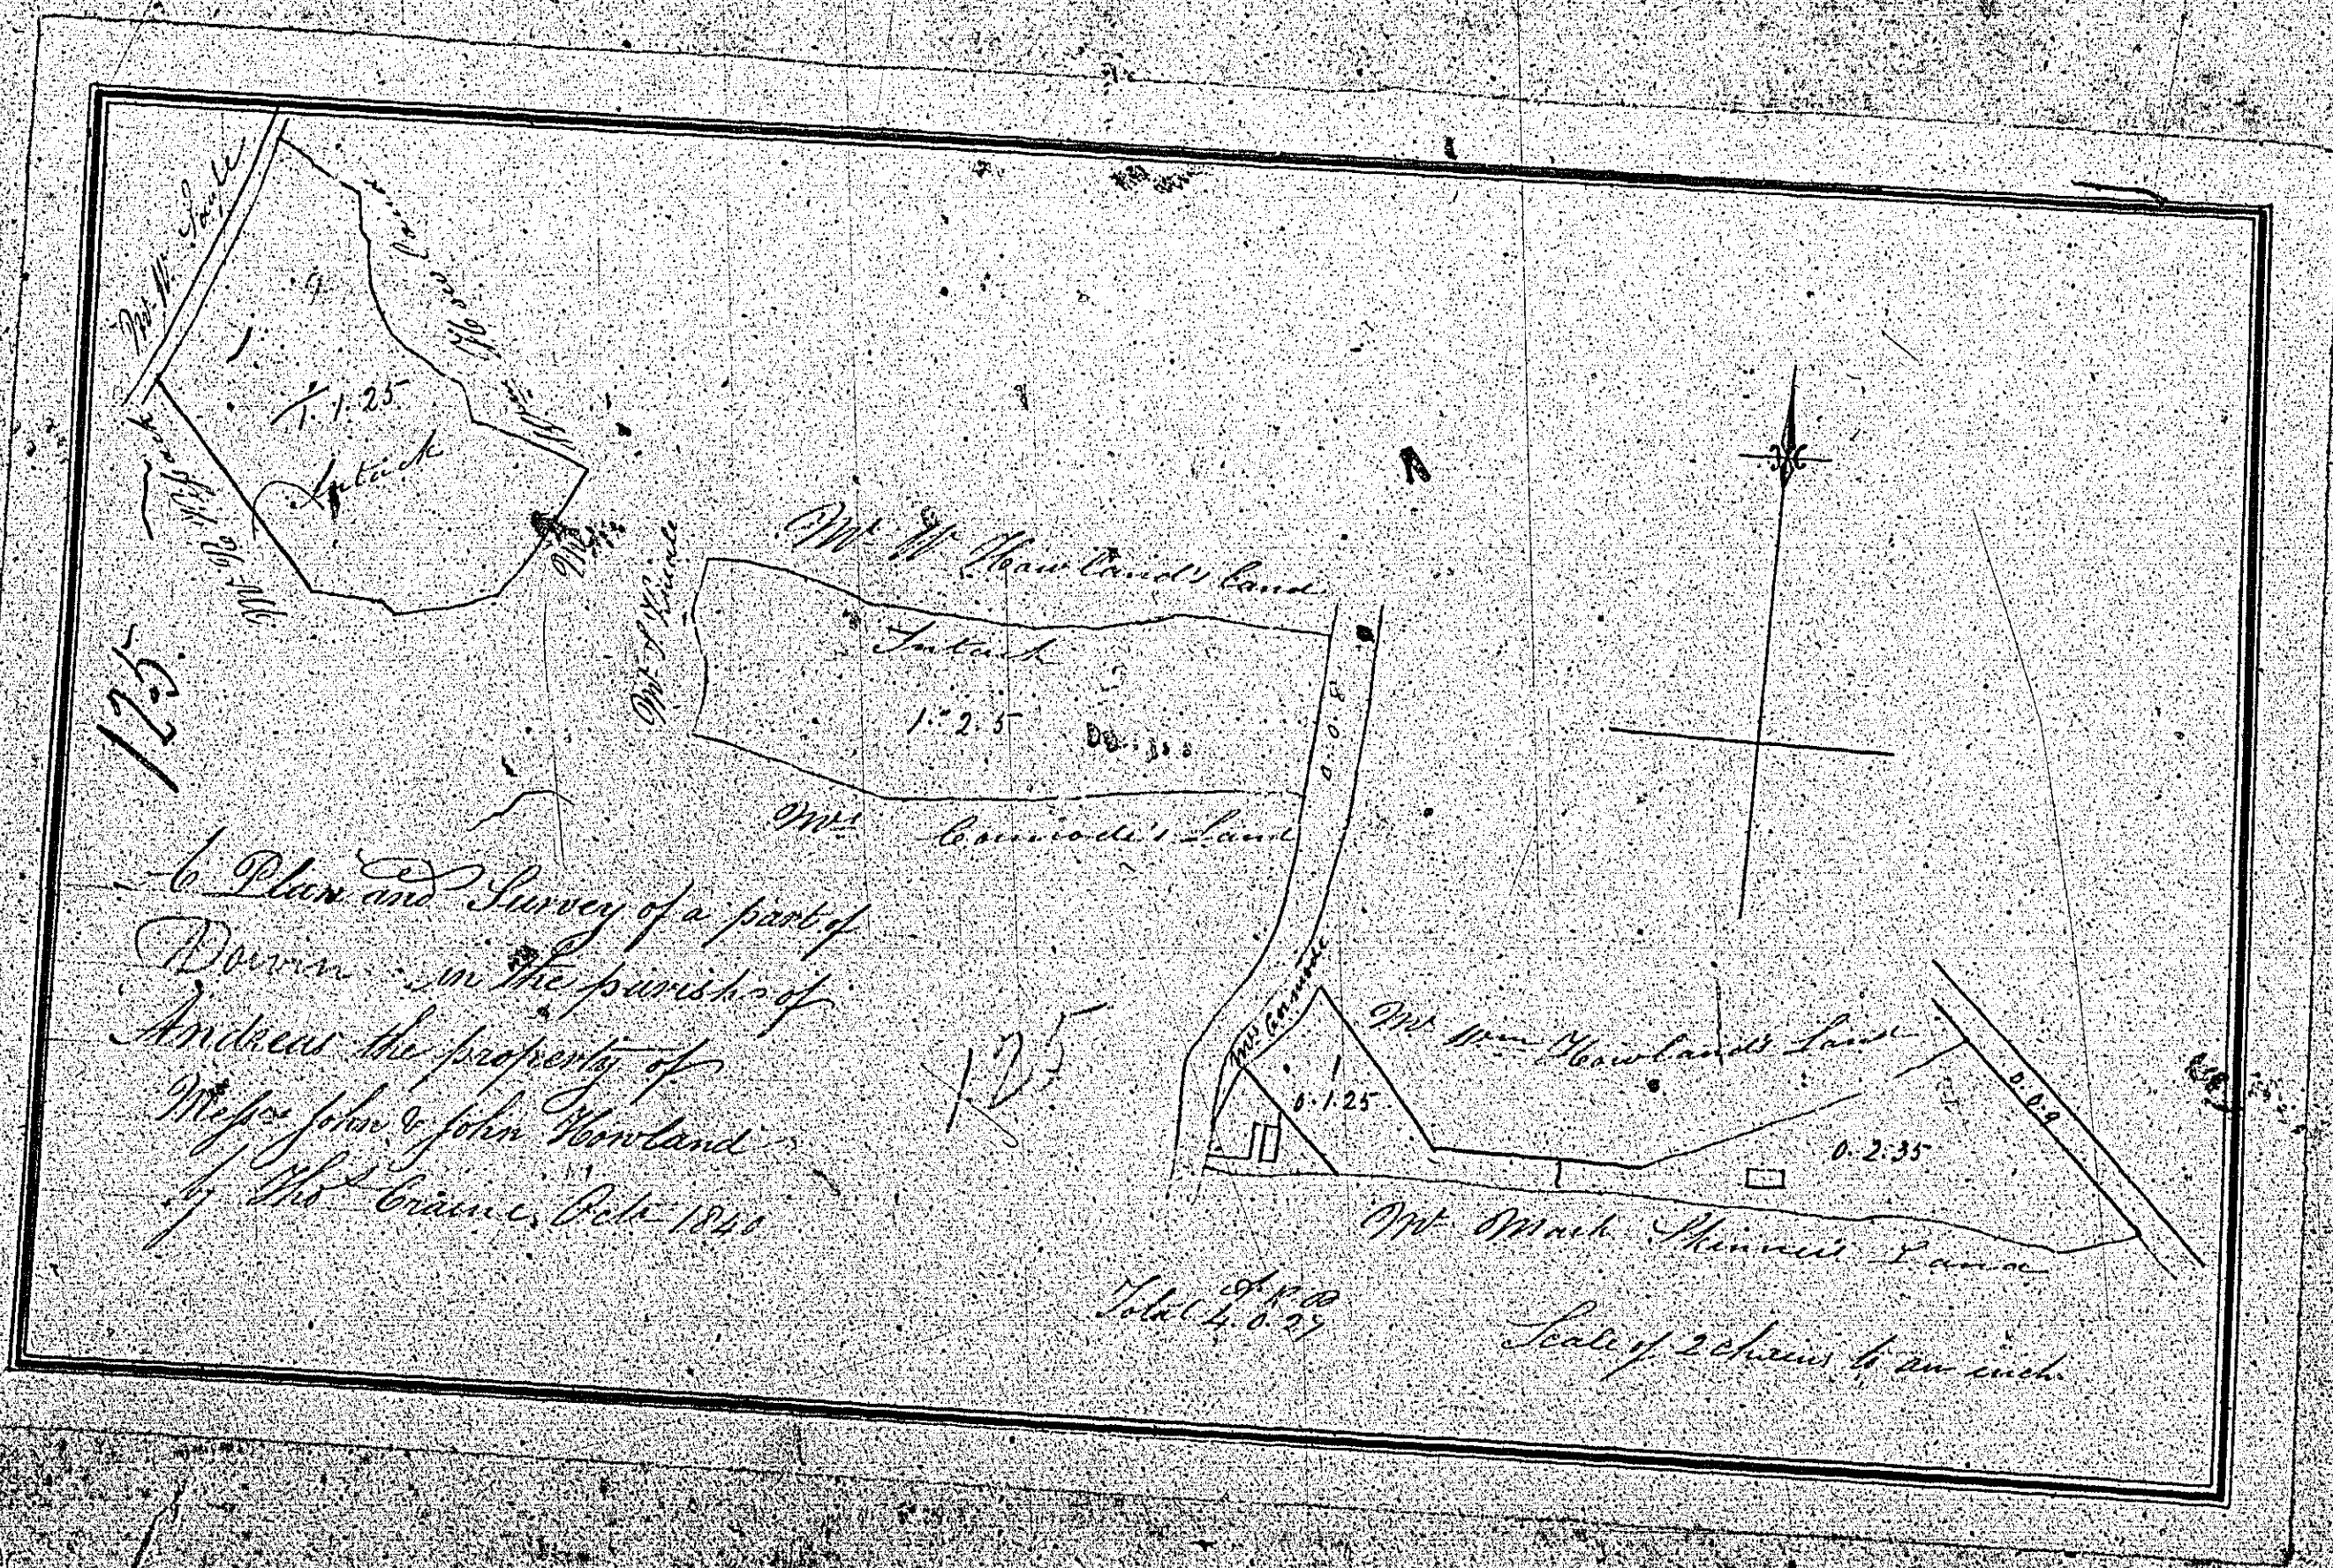 Mr. W. Sayle
1.1.25
Intack
Mr W Howland's land
Intack
1.2.5
0.0.8
Mrs Cormode's Land
125
A Plan and Survey of a part of
Dowin in the parish of
Andreas the property of
Messrs John & John Howland
by Thos Craine, Octr 1840
125
Mrs Cormode
0.1.25
Mr Wm Howland's Land
0.0.9
0.2.35
Mr Mark Skinner's Land
A R P
Total 4.0.27
Scale of 2 chains to an inch